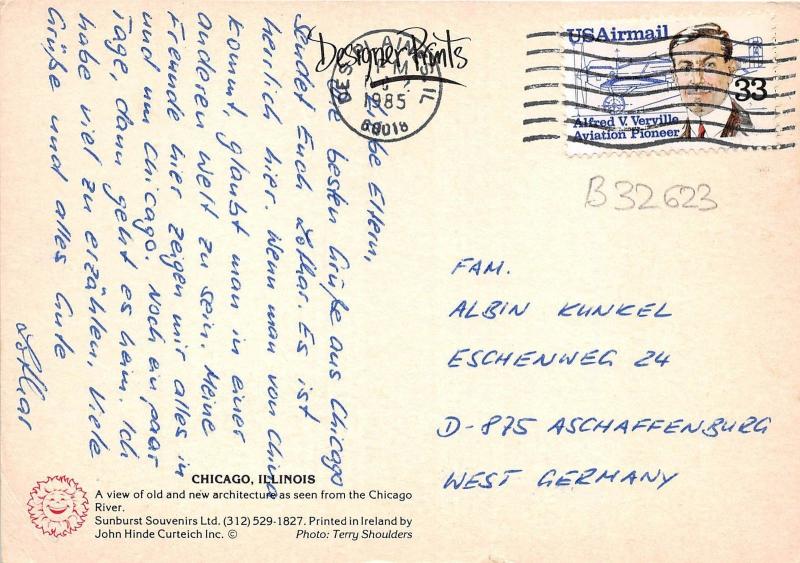 Designer Prints
DES PLAINES, IL
PM
1985
60018
USAirmail
33
Alfred V. Verville
Aviation Pioneer
B 32623
Liebe Eltern,
die besten Grüße aus Chicago
sendet Euch Lothar. Es ist
herlich hier. Wenn man von China
kommt, glaubt man in einer
anderen Welt zu sein. Meine
Freunde hier zeigen mir alles in
und um Chicago. Noch ein paar
Tage, dann geht es heim. Ich
habe viel zu erzählen. Viele
Grüße und alles Gute
Lothar
FAM.
ALBIN KUNKEL
ESCHENWEG 24
D-875 ASCHAFFENBURG
WEST GERMANY
CHICAGO, ILLINOIS
A view of old and new architecture as seen from the Chicago
River.
Sunburst Souvenirs Ltd. (312) 529-1827. Printed in Ireland by
John Hinde Curteich Inc. © Photo: Terry Shoulders